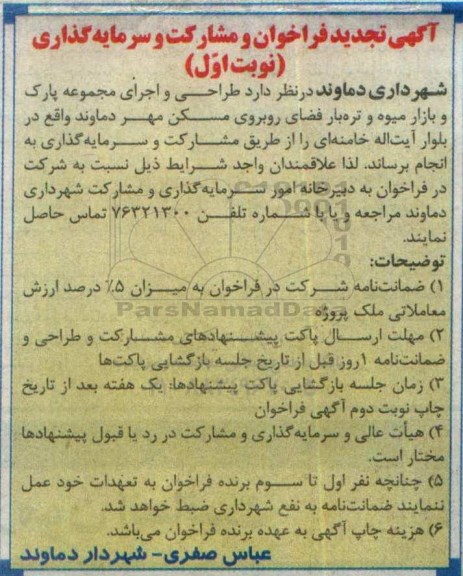 آگهی تجدید فراخوان و مشارکت و سرمایه‌گذاری
(نوبت اوّل)
شهرداری دماوند درنظر دارد طراحی و اجرای مجموعه پارک
و بازار میوه و تره‌بار فضای روبروی مسکن مهر دماوند واقع در
بلوار آیت‌اله خامنه‌ای را از طریق مشارکت و سرمایه‌گذاری به
انجام برساند. لذا علاقمندان واجد شرایط ذیل نسبت به شرکت
در فراخوان به دبیرخانه امور سرمایه‌گذاری و مشارکت شهرداری
دماوند مراجعه و یا با شماره تلفن ۷۶۳۲۱۳۰۰ تماس حاصل
نمایند.
توضیحات:
۱) ضمانت‌نامه شرکت در فراخوان به میزان ۵٪ درصد ارزش
معاملاتی ملک پروژه
ParsNamadData
۲) مهلت ارسال پاکت پیشنهادهای مشارکت و طراحی و
ضمانت‌نامه ۱روز قبل از تاریخ جلسه بازگشایی پاکت‌ها
۳) زمان جلسه بازگشایی پاکت پیشنهادها: یک هفته بعد از تاریخ
چاپ نوبت دوم آگهی فراخوان
۴) هیأت عالی و سرمایه‌گذاری و مشارکت در رد یا قبول پیشنهادها
مختار است.
۵) چنانچه نفر اول تا سوم برنده فراخوان به تعهدات خود عمل
ننمایند ضمانت‌نامه به نفع شهرداری ضبط خواهد شد.
۶) هزینه چاپ آگهی به عهده برنده فراخوان می‌باشد.
عباس صفری- شهردار دماوند